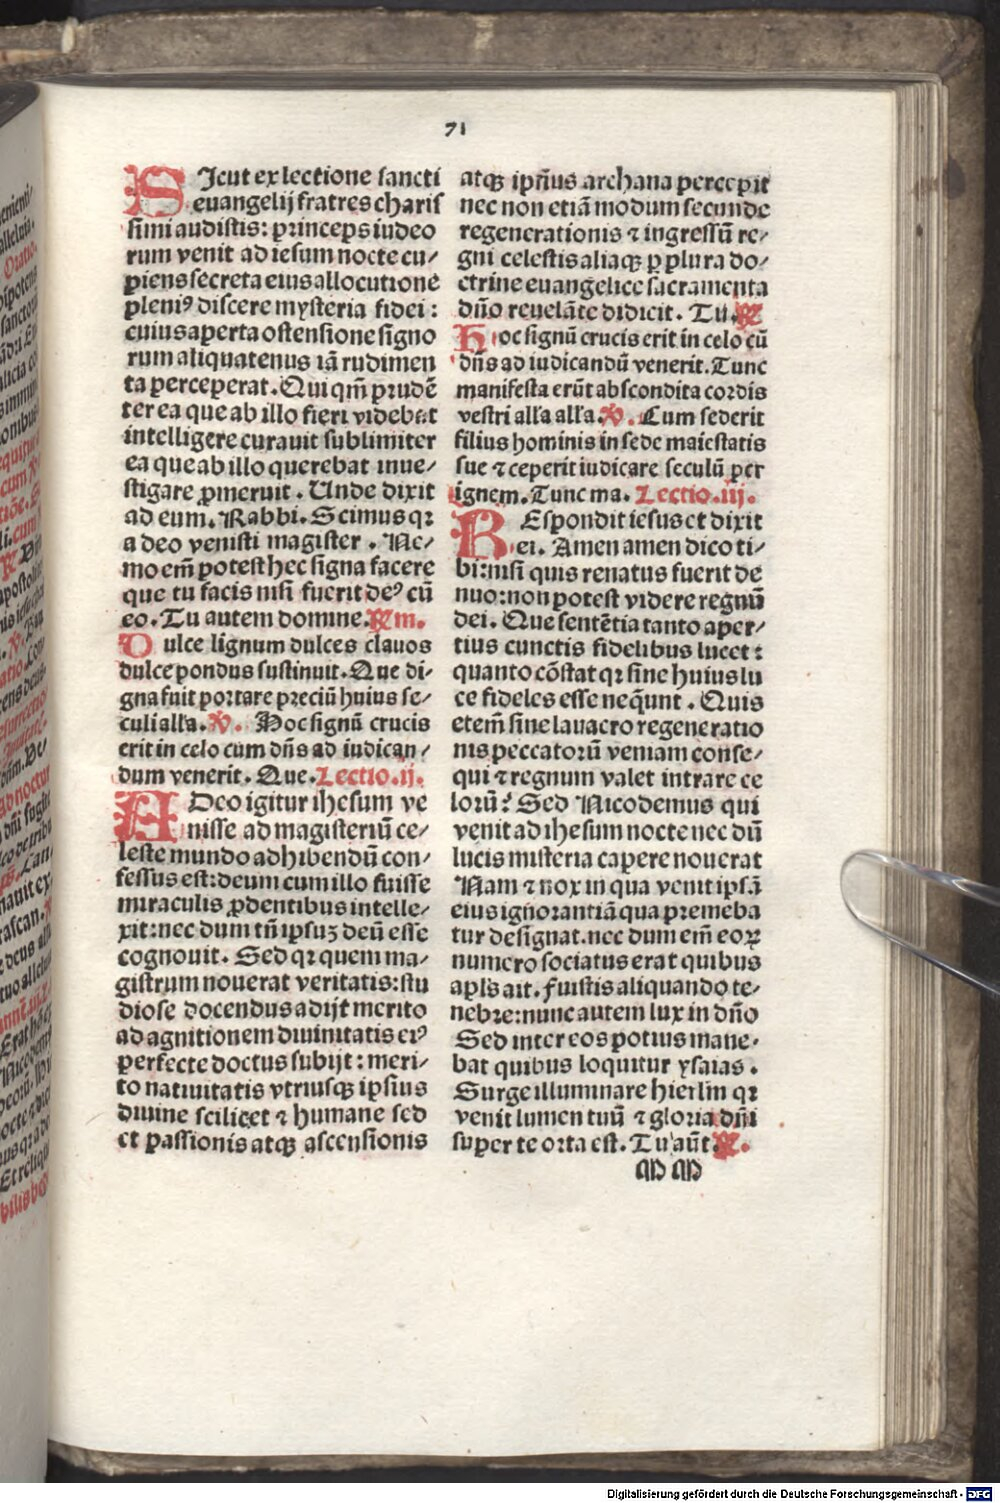 71
SIcut ex lectione sancti
euangelij fratres charis
simi audistis: princeps iudeo
rum venit ad iesum nocte cu/
piens secreta eius allocutione
pleniꝰ discere mysteria fidei:
cuius aperta ostensione signo
rum aliquatenus iã rudimen
ta perceperat. Qui qm̃ prudẽ
ter ea que ab illo fieri videbat
intelligere curauit sublimiter
ea que ab illo querebat inue/
stigare ꝓmeruit. Unde dixit
ad eum. Rabbi. Scimus qꝛ
a deo venisti magister. Ne/
mo em̃ potest hec signa facere
que tu facis nisi fuerit deꝰ cũ
eo. Tu autem domine. ℟m.
Dulce lignum dulces clauos
dulce pondus sustinuit. Que di/
gna fuit portare preciũ huius se/
culi alla. ℣. Hoc signũ crucis
erit in celo cum dñs ad iudican/
dum venerit. Que. Lectio.ij.
ADeo igitur ihesum ve
nisse ad magisteriũ ce/
leste mundo adhibendũ con/
fessus est: deum cum illo fuisse
miraculis ꝓdentibus intelle/
xit: nec dum tñ ipsuꝫ deũ esse
cognouit. Sed qꝛ quem ma/
gistrum nouerat veritatis: stu
diose docendus adijt merito
ad agnitionem diuinitatis eiꝰ
perfecte doctus subijt: meri/
to natiuitatis vtriusqꝫ ipsius
diuine scilicet ⁊ humane sed
et passionis atqꝫ ascensionis
atqꝫ ipsius archana percepit
nec non etiã modum secunde
regenerationis ⁊ ingressũ re/
gni celestis aliaqꝫ ꝑ plura do/
ctrine euangelice sacramenta
dño reuelãte didicit. Tu. ℟
Hoc signũ crucis erit in celo cũ
dñs ad iudicandũ venerit. Tunc
manifesta erũt abscondita cordis
vestri alla alla. ℣. Cum sederit
filius hominis in sede maiestatis
sue ⁊ ceperit iudicare seculũ per
ignem. Tunc ma. Lectio.iij.
REspondit iesus et dixit
ei. Amen amen dico ti/
bi: nisi quis renatus fuerit de
nuo: non potest videre regnũ
dei. Que sentẽtia tanto aper/
tius cunctis fidelibus lucet:
quanto cõstat qꝛ sine huius lu
ce fideles esse neq̃unt. Quis
etem̃ sine lauacro regeneratio
nis peccatorũ veniam conse/
qui ⁊ regnum valet intrare ce
lorũ? Sed Nicodemus qui
venit ad ihesum nocte nec dũ
lucis misteria capere nouerat
Nam ⁊ nox in qua venit ipsã
eius ignorantiã qua premeba
tur designat. nec dum em̃ eoꝝ
numero sociatus erat quibus
apls ait. Fuistis aliquando te/
nebre: nunc autem lux in dño
Sed inter eos potius mane/
bat quibus loquitur ysaias.
Surge illuminare hierlm qꝛ
venit lumen tuũ ⁊ gloria dñi
super te orta est. Tu aũt. ℟.
Digitalisierung gefördert durch die Deutsche Forschungsgemeinschaft - DFG